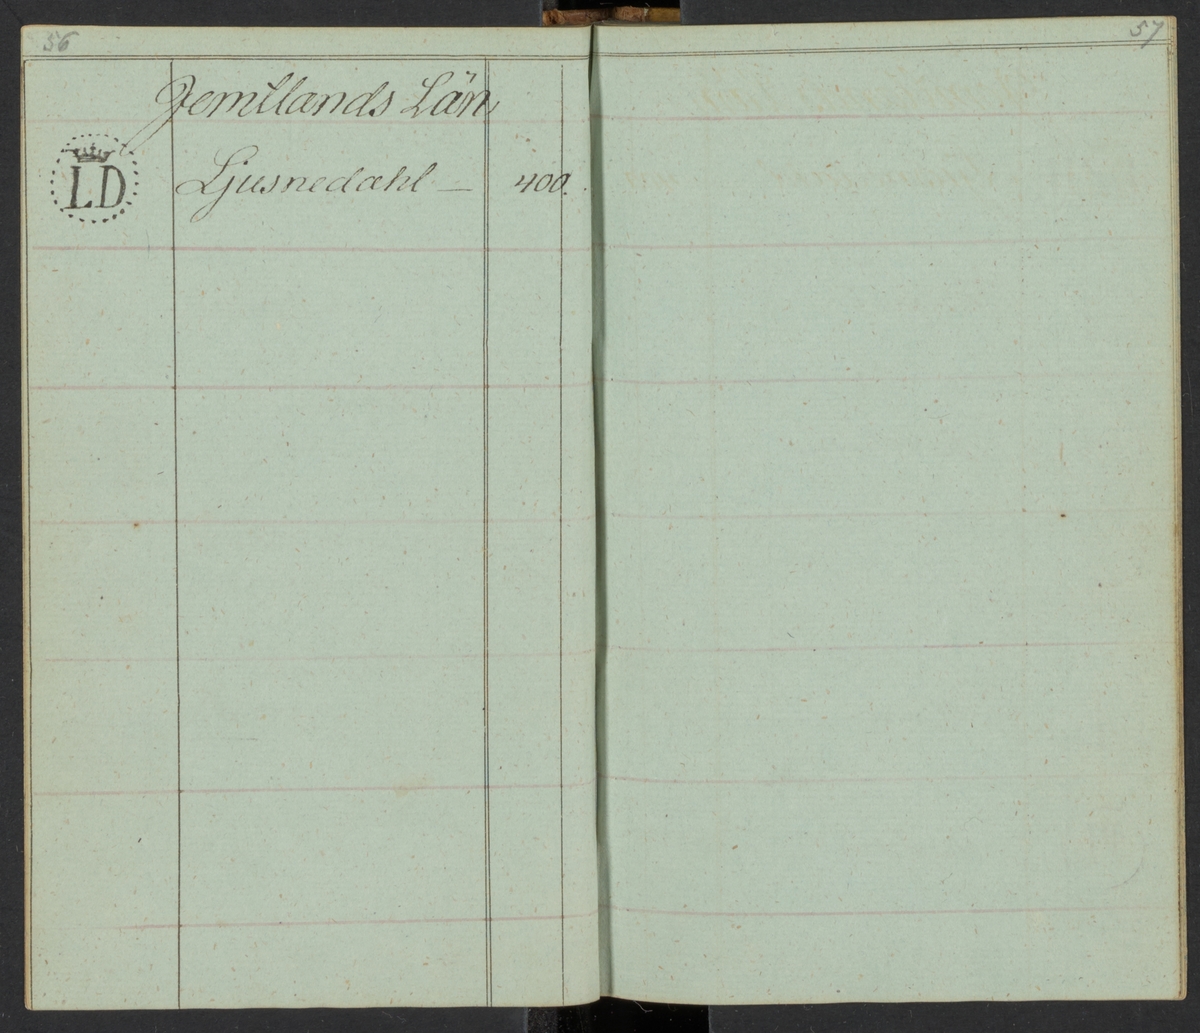 56
57
Jemtlands Län
LD Ljusnedahl — 400.